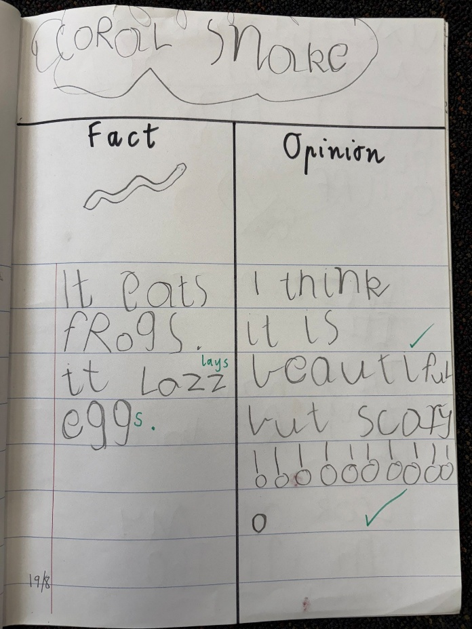 CORAL SNAKE
Fact
Opinion
It eats
FRogS.
it Lazz
lays
eggs.
I think
it is
beautiful
but scary
!!!!!!!!!
o
19/8